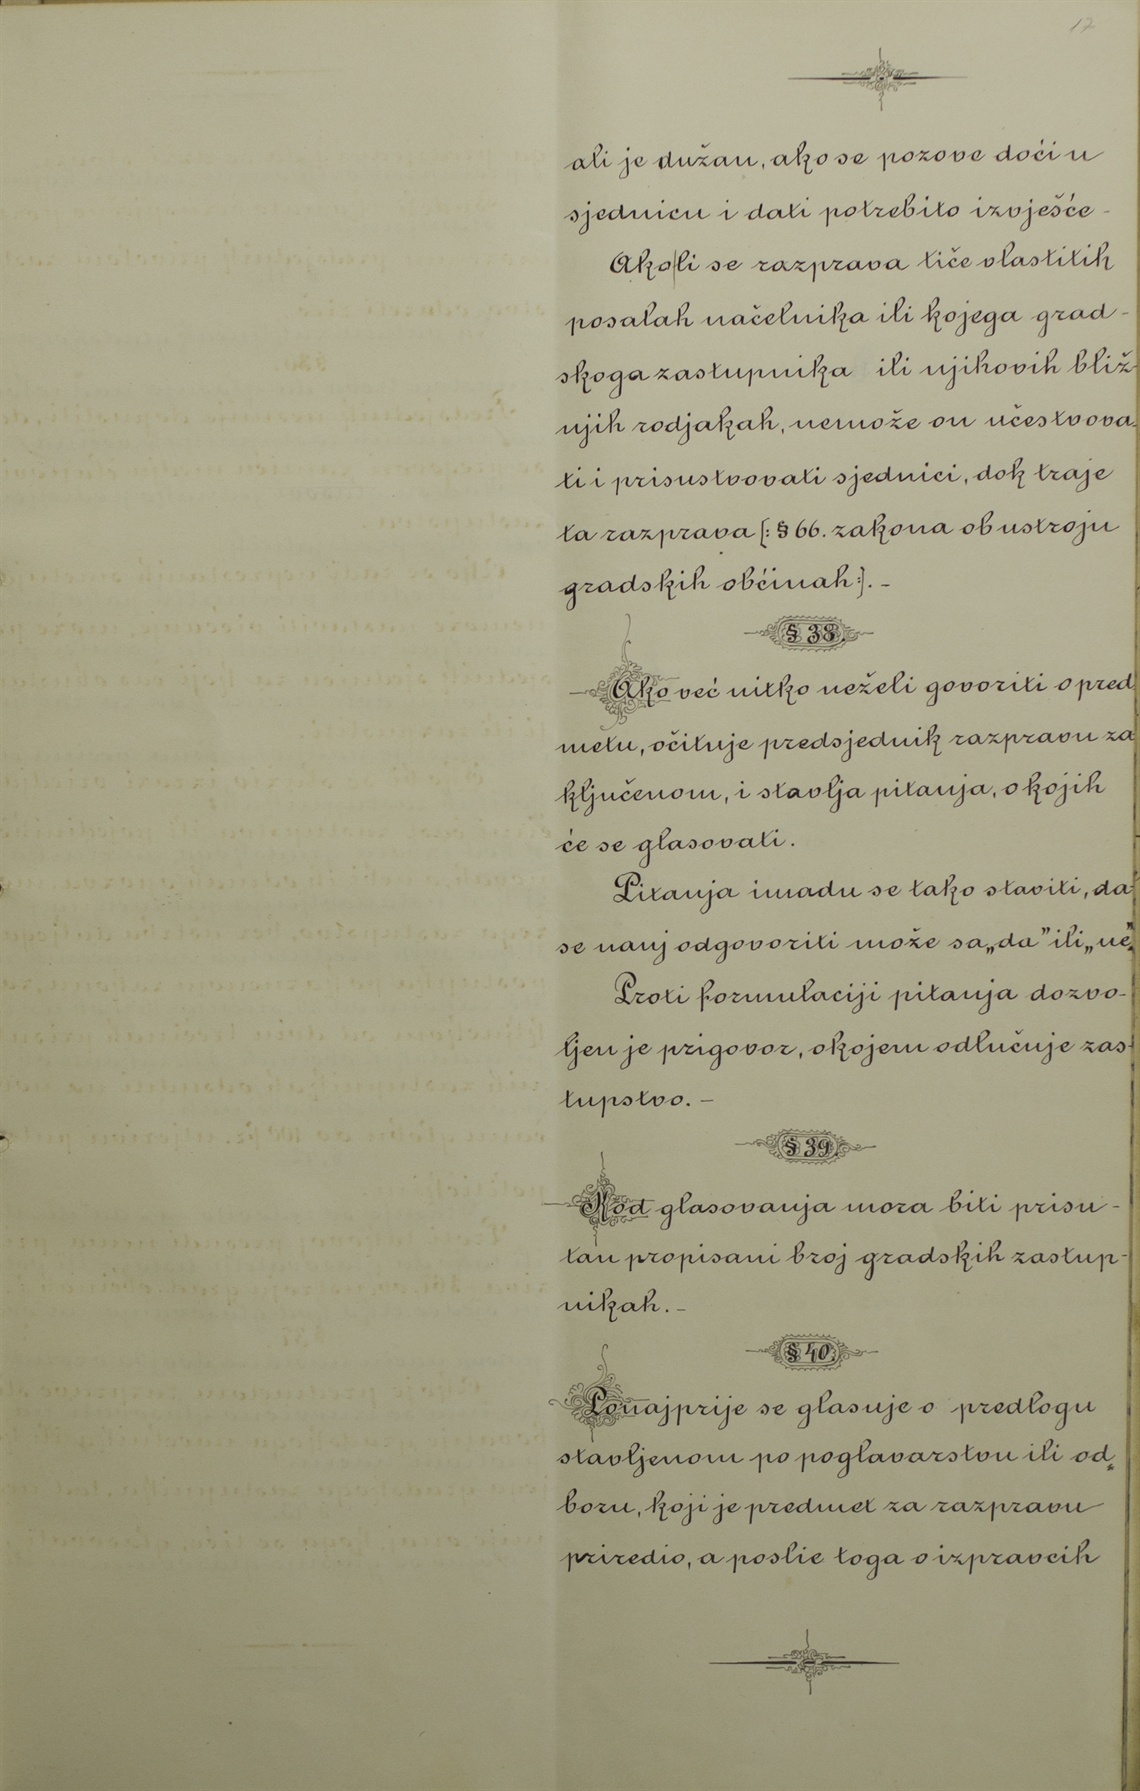 17
ali je dužan, ako se pozove doći u
sjednicu i dati potrebito izvješće -
Ako li se razprava tiče vlastitih
posalah načelnika ili kojega grad-
skoga zastupnika ili njihovih bliž-
njih rodjakah, nemože on učestvova-
ti i prisustvovati sjednici, dok traje
ta razprava [: § 66. zakona ob ustroju
gradskih obćinah :]. -
§ 38.
Ako već nitko neželi govoriti o pred
metu, očituje predsjednik razpravu za
ključenom, i stavlja pitanja, o kojih
će se glasovati.
Pitanja imadu se tako staviti, da
se nanj odgovoriti može sa „da” ili „ne”.
Proti formulaciji pitanja dozvo-
ljen je prigovor, o kojem odlučuje zas-
tupstvo. -
§ 39.
Kod glasovanja mora biti prisu-
tan propisani broj gradskih zastup-
nikah. -
§ 40.
Ponajprije se glasuje o predlogu
stavljenom po poglavarstvu ili od-
boru, koji je predmet za razpravu
priredio, a poslie toga o izpravcih